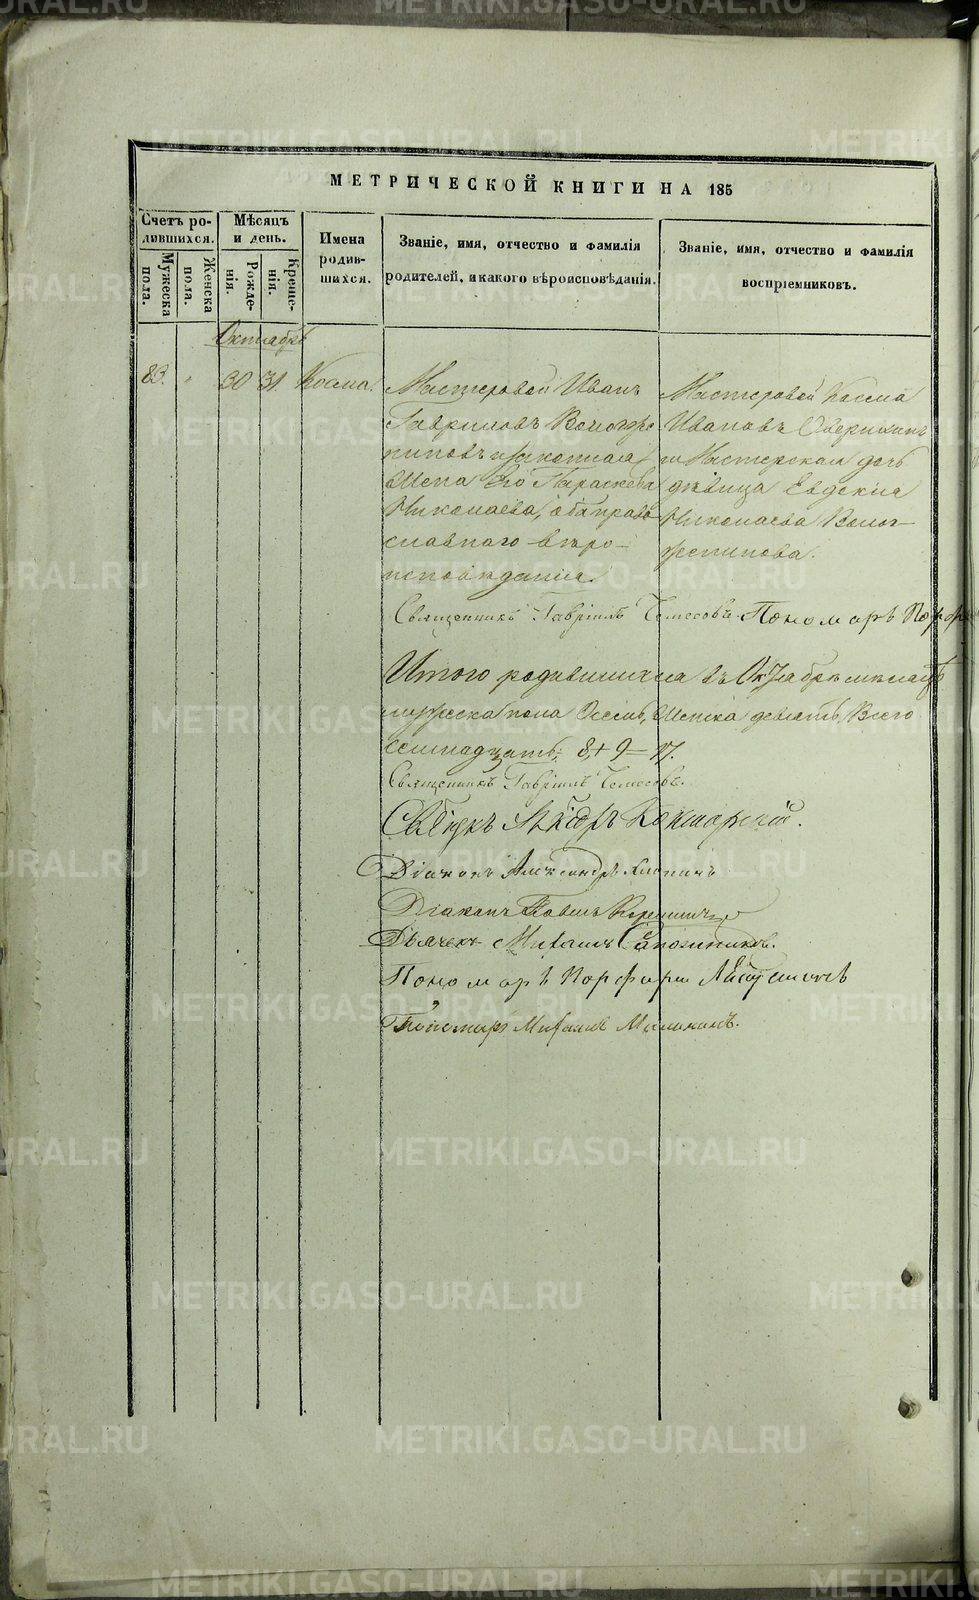 МЕТРИЧЕСКОЙ КНИГИ НА 185
Счетъ родившихся.
Мужеска пола.
Женска пола.
Мѣсяцъ и день.
Рожденія.
Крещенія.
Имена родившихся.
Званіе, имя, отчество и фамилія
родителей, и какого вѣроисповѣданія.
Званіе, имя, отчество и фамилія
воспріемниковъ.
Октябрь
83. " 30 31 Косма.
Мастеровой Иванъ
Гавриловъ
и законная
жена Его Параскева
Николаева, оба право
славнаго вѣро-
исповѣданія.
Мастеровой Косма
Ивановъ
и Мастерская дочь
дѣвица Евдокія
Николаева
Священникъ Гавріилъ Пономарь
Итого родившихся въ Октябрѣ мѣсяцѣ
мужеска пола Осемь, Женска девять, Всего
семнадцать; 8+9=17.
Священникъ Гавріилъ
Діаконъ Александръ
Діаконъ Павелъ
Дьячекъ Михаилъ Сапожниковъ.
Пономарь Порфирій
Пономарь Михаилъ
METRIKI.GASO-URAL.RU